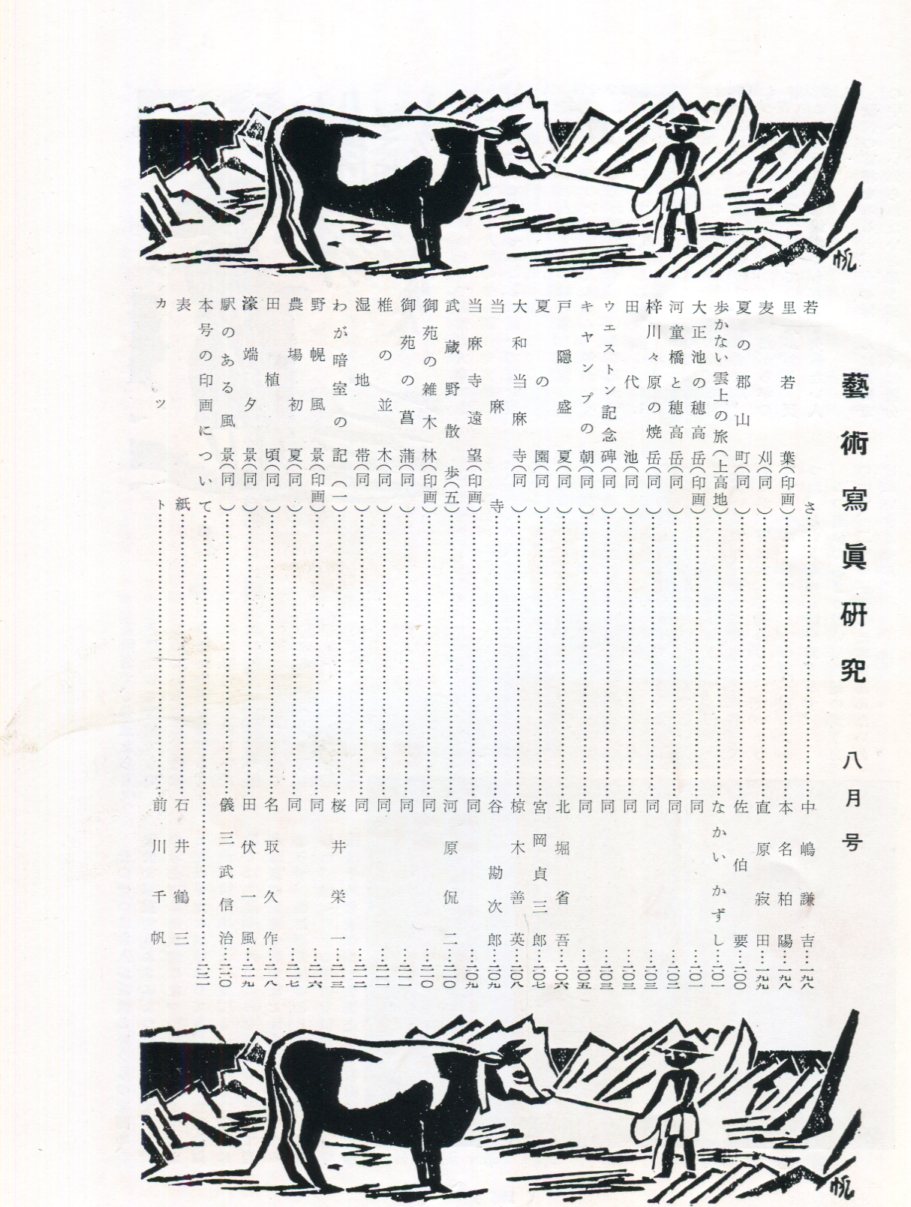 藝術寫眞研究 八月号
若さ……中嶋謙吉…一九八
里若葉(印画)……本名柏陽…一九八
麦刈(同)……直原寂田…一九九
夏の郡山町(同)……佐伯要…二〇〇
歩かない雲上の旅(上高地)……なかいかずし…二〇一
大正池の穂高岳(印画)……同…二〇一
河童橋と穂高岳(同)……同…二〇二
梓川々原の焼岳(同)……同…二〇三
田代池(同)……同…二〇三
ウエストン記念碑(同)……同…二〇三
キヤンプの朝(同)……同…二〇五
戸隠盛夏(同)……北堀省吾…二〇六
夏の園(同)……宮岡貞三郎…二〇七
大和当麻寺(同)……椋木善英…二〇八
当麻寺……谷勘次郎…二〇九
当麻寺遠望(印画)……同…二〇九
武蔵野散歩(五)……河原侃二…二一〇
御苑の雑木林(印画)……同…二一〇
御苑の菖蒲(同)……同…二一一
椎の並木(同)……同…二一一
湿地帯(同)……同…二一二
わが暗室の記(一)……桜井栄一…二一三
野幌風景(印画)……同…二一六
農場初夏(同)……同…二一七
田植頃(同)……名取久作…二一八
濠端夕景(同)……田伏一風…二一九
駅のある風景(同)……儀三武信治…二二〇
本号の印画について……二二一
表紙……石井鶴三
カット……前川千帆